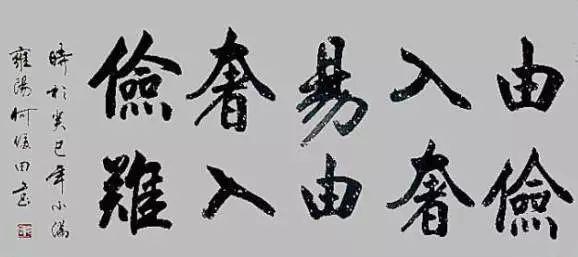 由儉
入奢
易由
奢入
儉難
時於癸巳年小滿
雍陽何田書